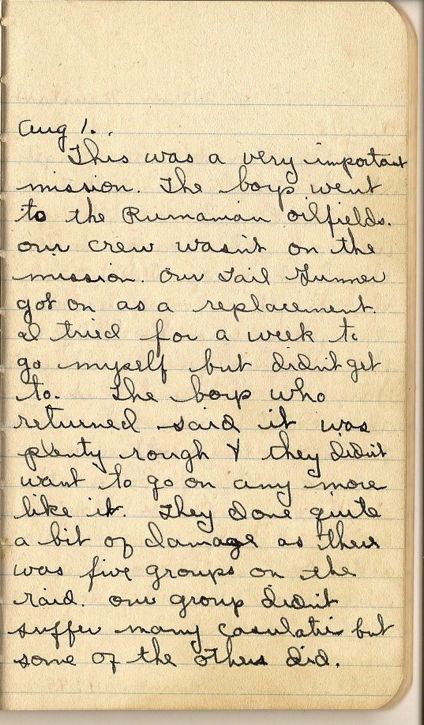 Aug 1..
This was a very important
mission. The boys went
to the Rumanian oilfields.
our crew wasn't on the
mission. Our Tail Gunner
got on as a replacement.
I tried for a week to
go myself but didn't get
to. The boys who
returned said it was
plenty rough & they didn't
want to go on any more
like it. They done quite
a bit of damage as there
was five groups on the
raid. our group didn't
suffer many casulatie but
some of the others did.